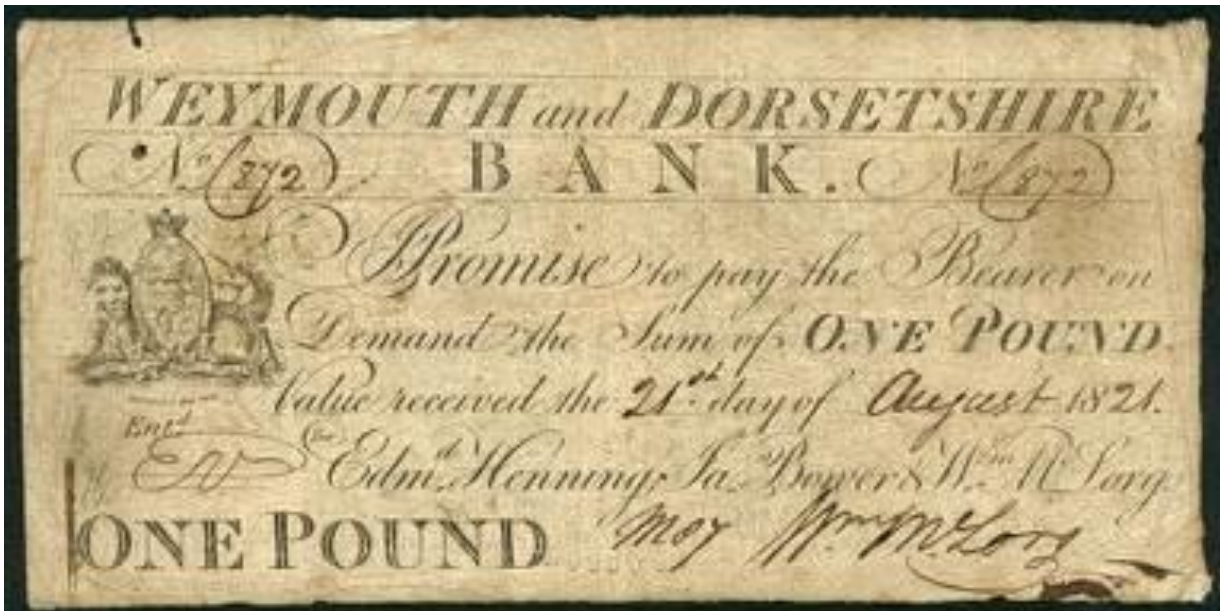 WEYMOUTH and DORSETSHIRE
No 872 BANK. No 872
I Promise to pay the Bearer on
Demand the Sum of ONE POUND
Value received the 21st day of August 1821.
Entd
For Edmd. Henning, Ja. Bower & Wm. Mc Lorg
ONE POUND Wm. McLorg